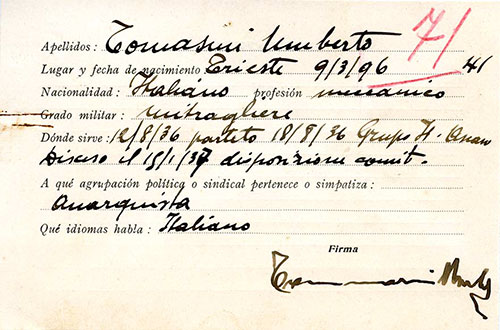 71
Apellidos: Tomasini Umberto
Lugar y fecha de nacimiento Trieste 9/3/96 41
Nacionalidad: Italiano profesión meccanico
Grado militar: mitragliere
Dónde sirve: 12/8/36 partito 18/8/36 Grupo It.
Disceso il 15/1/37 disposizione comit.
A qué agrupación política o sindical pertenece o simpatiza:
Anarquista
Qué idiomas habla: Italiano
Firma